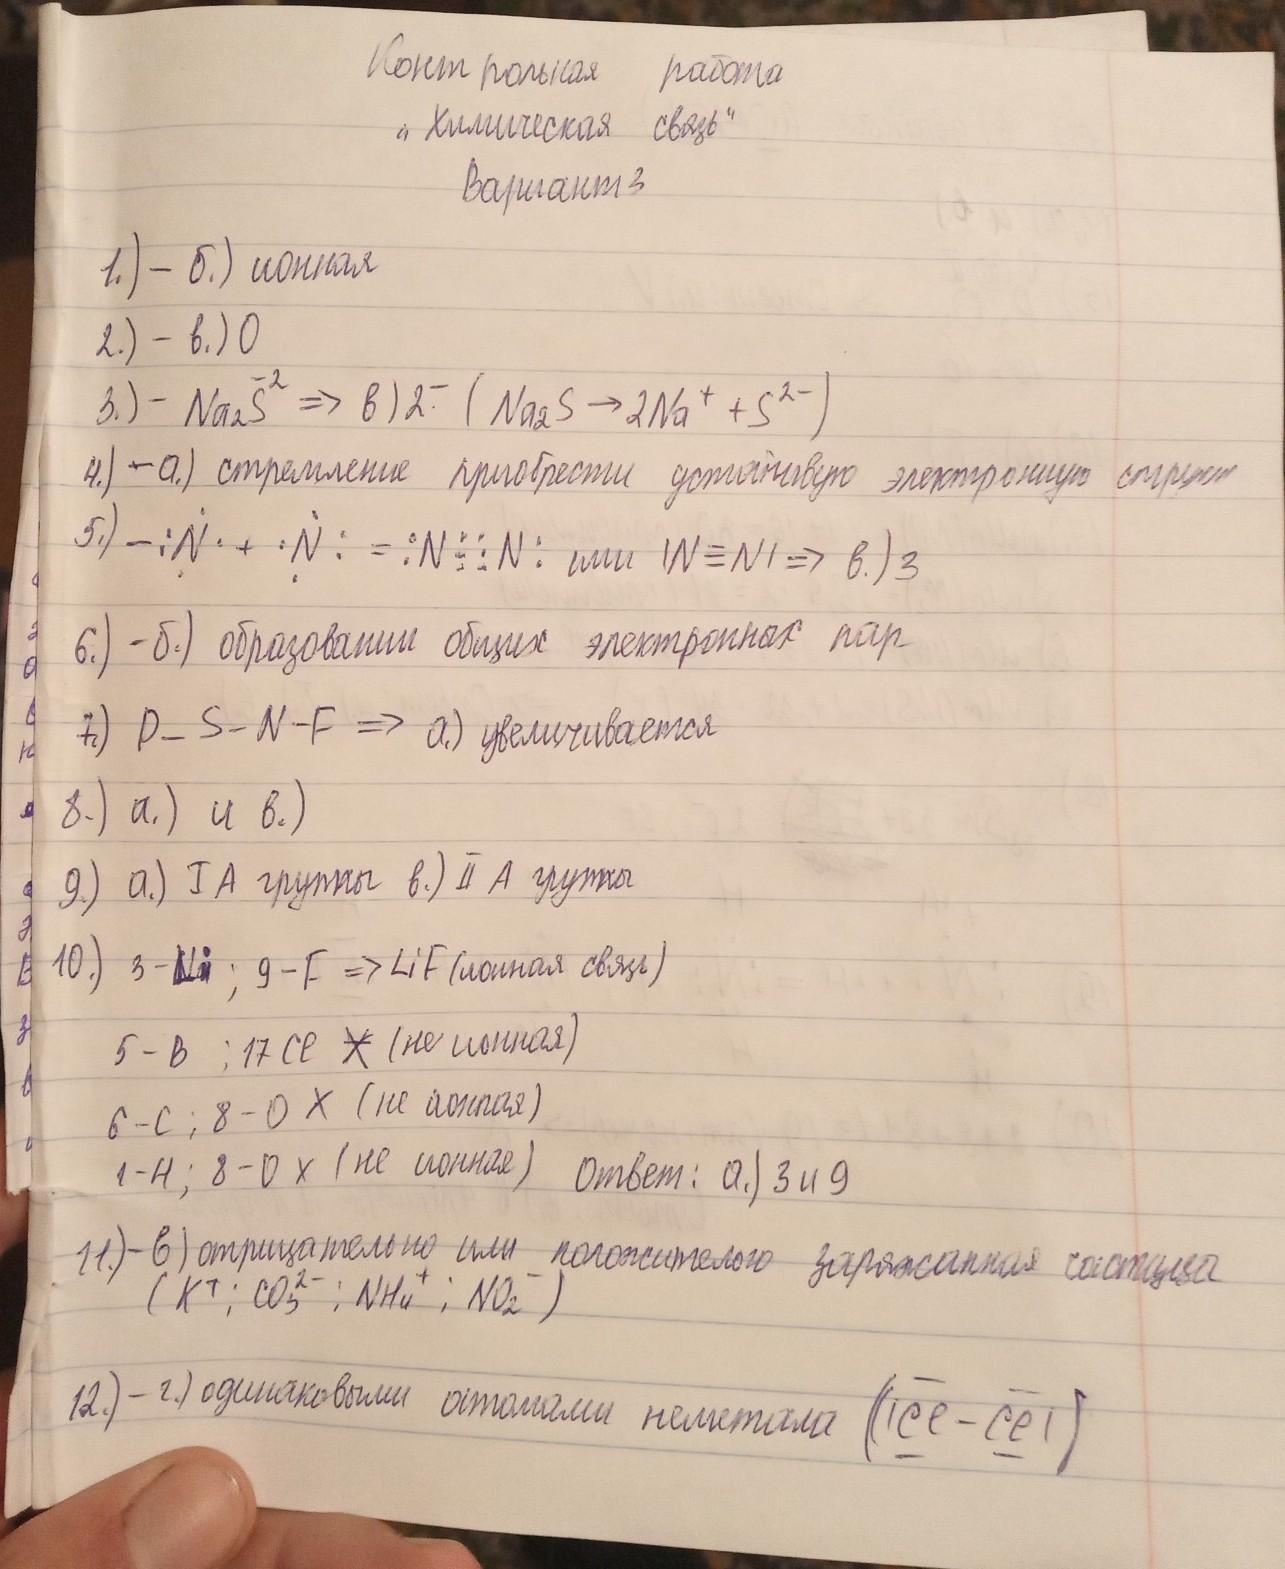 Контрольная работа
"Химическая связь"
Вариант 3
1.) – б.) ионная
2.) – в.) О
3.) – Na₂S⁻² => в) 2⁻ ( Na₂S → 2Na⁺ + S²⁻)
4.) – а.) стремление приобрести устойчивую электронную структ
5.) – :Ṅ· + ·Ṅ: = :N⋮⋮N: или |N≡N| => в.) 3
6.) – б.) образовании общих электронных пар
7.) P – S – N – F => а.) увеличивается
8.) а.) и в.)
9.) а.) I А группы в.) II А группы
10.) 3-Li ; 9-F => LiF (ионная связь)
5-B ; 17 Cl X (не ионная)
6-C ; 8-O X (не ионная)
1-H ; 8-O X (не ионная) Ответ: а.) 3 и 9
11.) – в) отрицательно или положителого заряжанная частица
(K⁺ ; CO₃²⁻ ; NH₄⁺ ; NO₂⁻)
12.) – г.) одинаковыми атомами неметала (|Cl – Cl|)